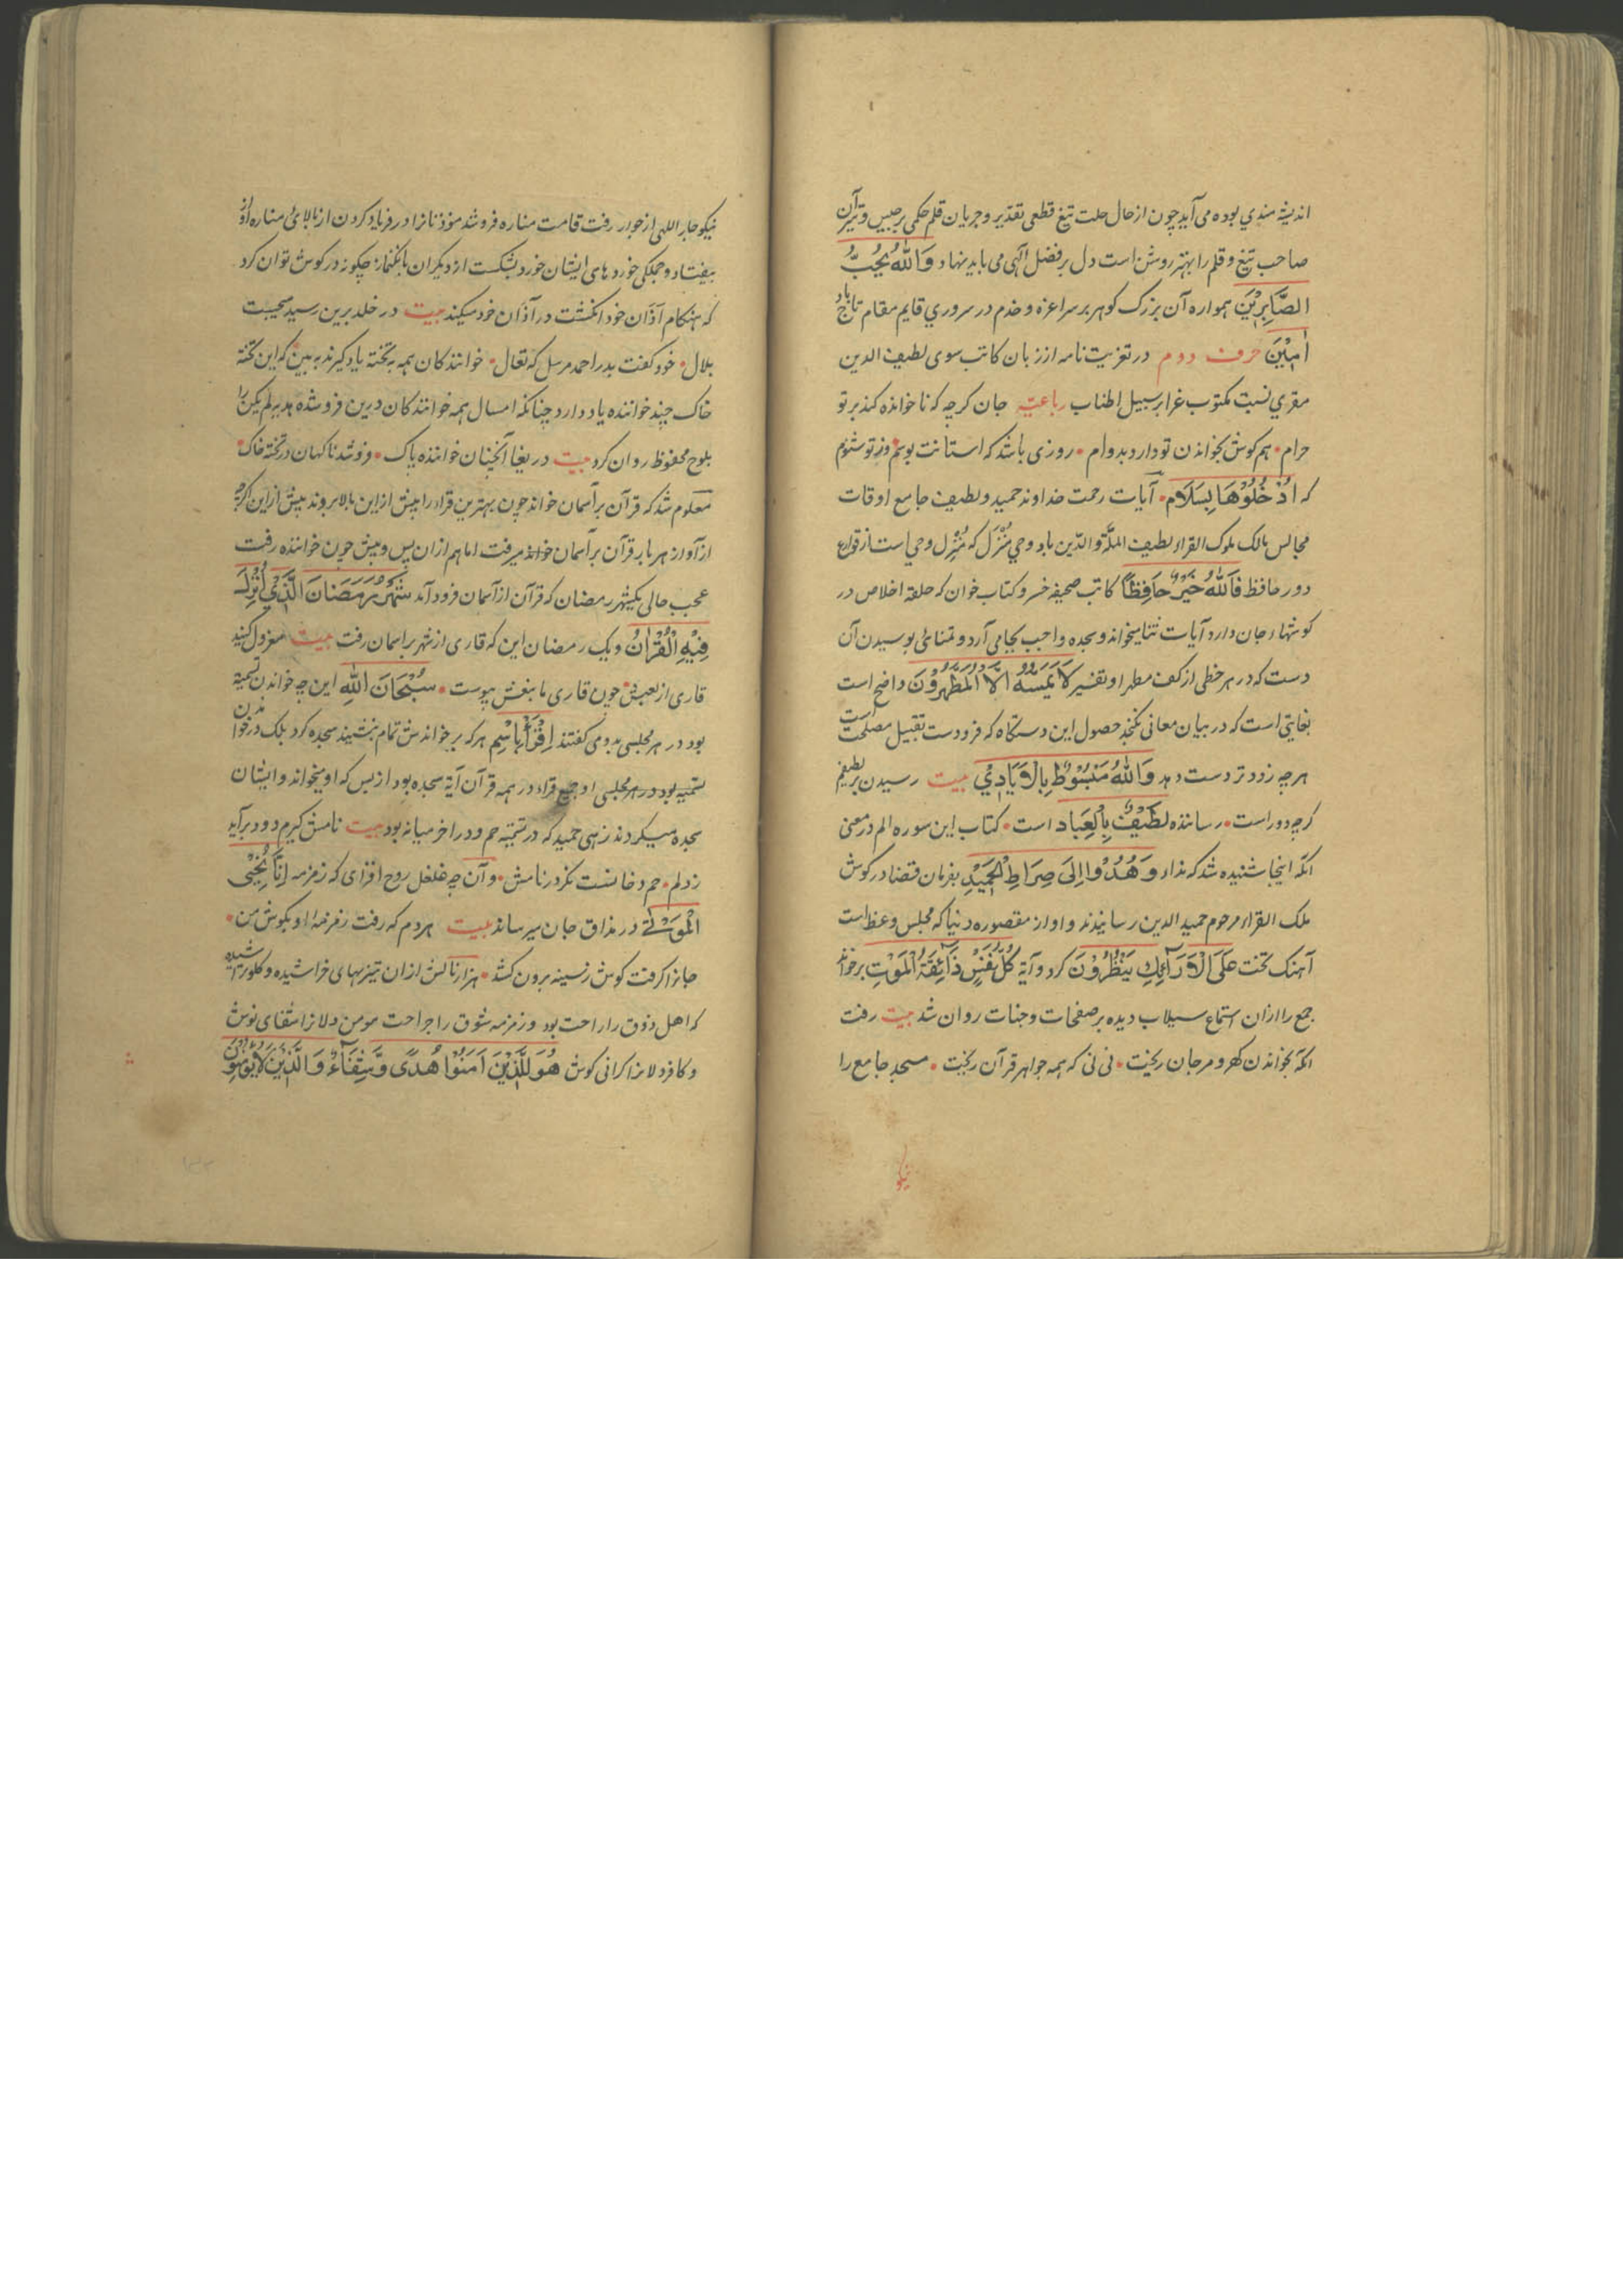 اندیشه مندي بوده می آید چون از حال حلت تیغ قطعی تقدیر و جریان قلم حکمی برجیس و تیر آن
صاحب تیغ و قلم را بهتر روشن است دل بر فضل الهی می باید نهاد وَاللهُ یُحِبُّ
الصَّابِرِیْنَ همواره آن بزرک کوهر بر سر اعزه و خدم در سروري قایم مقام تاج باد
اٰمِیْنَ حرف دوم در تعزیت نامه از زبان کاتب سوی لطیف الدین
مقري نسبت مکتوب غرا بر سبیل اطناب رباعیه جان کرچه که ناخوانده کند بر تو
حرام • هم کوش بخواندن تو دارد بدوام • روزی باشد که استانت بوسم وز تو شنوم
که اُدْخُلُوْهَا بِسَلَام • آیات رحمت خداوند حمید و لطیف جامع اوقات
مجالس مالک ملوک القراء لطیف الملة والدین باد و حي مُنْزَل که مُنْزِل وحي است از قوارع
دور حافظ فَاللهُ خَیْرٌ حَافِظًا کاتب صحیفه خسرو کتاب خوان که حلقه اخلاص در
کوشهاء جان دارد آیات ثنا میخواند و سجده واجب بجا می آرد و تمناءی بوسیدن آن
دست که در هر خطی از کف مطهر او تفسیر لَا یَمَسُّهُ اِلَّا الْمُطَهَّرُوْنَ واضح است
بغایتی است که در بیان معانی نکنجد حصول این دستکاه که فرودست تقبیل مصلحت
هرچه زودتر دست دهد وَاللهُ مَبْسُوْطٌ بِالْاَیَادِيْ بیت رسیدن بر لطیفم
کرچه دور است • رساننده لَطِیْفٌ بِالْعِبَاد است • کتاب این سوره الم در معنی
آنکه اینجا شنیده شد که نداء وَهُدُوْا اِلَی صِرَاطِ الْحَمِیْدِ بفرمان قضا در کوش
ملک القراء مرحوم حمید الدین رسانیدند و او از مقصوره دنیا که مجلس وعظ است
آهنک تخت عَلَی الْاَرَآئِكِ یَنْظُرُوْنَ کرد و آیة کُلُّ نَفْسٍ ذَآئِقَةُ الْمَوْتِ برخواند
جمع را از آن استماع سیلاب دیده بر صفحات وجنات روان شد بیت رفت
آنکه بخواندن کهر و مرجان ریخت • نی نی که همه جواهر قرآن ریخت • مسجد جامع را
نیکو
نیکو جار اللهی از جوار رفت قامت مناره فرو شد موذنانرا در فریاد کردن از بالائ مناره آواز
بیفتاد و جملکی خوردهای ایشان خورد بشکست از دیکران بانکنماز چکونه در کوش توان کرد
که هنکام آذان خود انکشت در آذان خود میکنند بیت در خلد برین رسید صحبت
بلال • خود کفت بدر احمد مرسل که تعال • خوانندکان همه به تخته یاد کیرند ببین که این تخته
خاک چند خواننده یاد دارد چنانکه امسال همه خوانندکان درین فرو شده هدیه لم یکن را
بلوح محفوظ روان کرد بیت دریغا آنچنان خواننده پاک • فرو شد ناکهان در تخته خاک •
معلوم شد که قرآن بر آسمان خواند چون بهترین قراء را پیش از این بالا بروند پیش از این اکرچه
از آواز هر بار قرآن بر آسمان خوانده میرفت اما هم از آن پس و پیش چون خواننده رفت
عجب حالی یکشهر رمضان که قرآن از آسمان فرود آمد شَهْرُ رَمَضَانَ الَّذِيْ اُنْزِلَ
فِیْهِ الْقُرْاٰنُ و یک رمضان این که قاری از شهر بر اسمان رفت بیت معزول کنید
قاری از نعش • چون قاری ما بنعش پیوست • سُبْحَانَ اللهِ این چه خواندن تسمیه
بود در هر مجلسی بدو می کفتند اِقْرَأْ بِاسْمِ هر که بر خواندنش تمام بنشیند سجده کرد بلک در خواندن
تسمیه بود در هر مجلسی او جمیع قراء در همه قرآن آیة سجده بود از بس که او میخواند و ایشان
سجده میکردند زهی حمید که در تتمه حم ودر اخر میانه بود بیت نامش کیرم دود برآید
ز دلم • حم و دخانست نکر در نامش • و آن چه غلغل روح افزای که زمزمه اِنَّا نُحْیِی
الْمَوْتٰی در مذاق جان میرساند بیت هر دم که رفت زمزمه او بکوش من •
جانرا کرفت کوش ز سینه برون کشد • هزار نالش از آن تیزیهای خراشیده و کلو تراشیده
که اهل ذوق را راحت بود و زمزمه شوق را جراحت مومن دلانرا شفای نوش
و کافر دلانرا کرانی کوش هُوَ لِلَّذِیْنَ اٰمَنُوْا هُدًی وَّشِفَآءٌ وَالَّذِیْنَ لَا یُؤْمِنُوْنَ